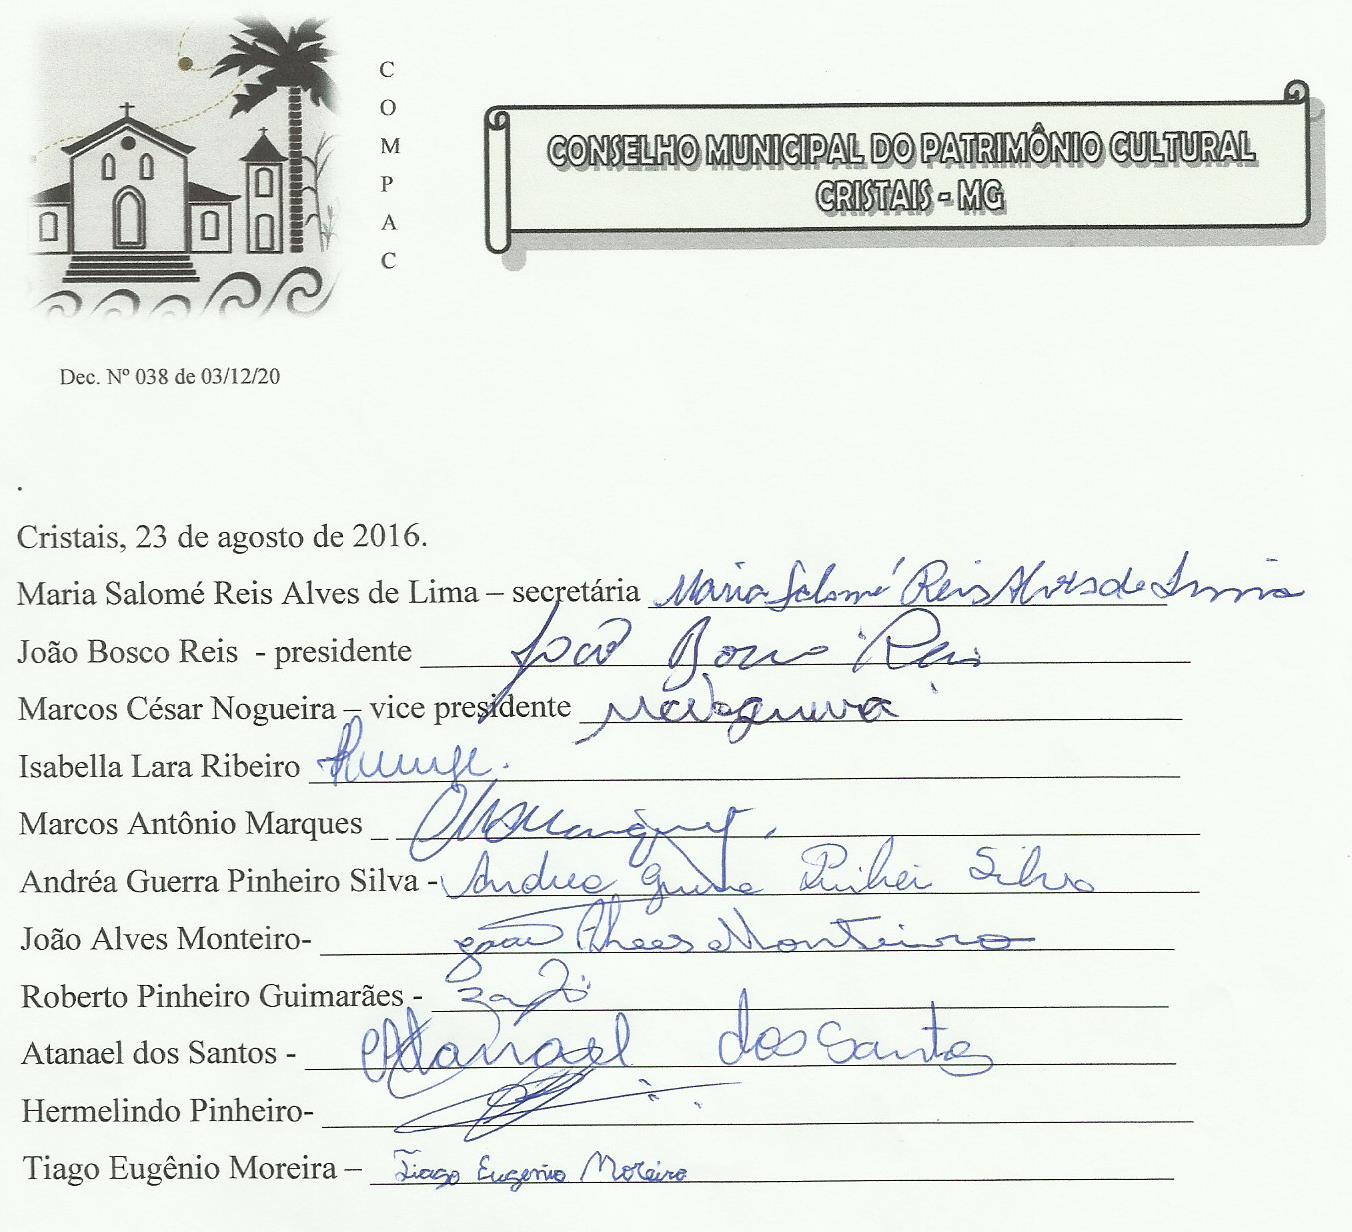 COMPAC
CONSELHO MUNICIPAL DO PATRIMÔNIO CULTURAL
CRISTAIS - MG
Dec. Nº 038 de 03/12/20
.
Cristais, 23 de agosto de 2016.
Maria Salomé Reis Alves de Lima – secretária Maria Salomé Reis Alves de Lima
João Bosco Reis - presidente João Bosco Reis
Marcos César Nogueira – vice presidente
Isabella Lara Ribeiro
Marcos Antônio Marques
Andréa Guerra Pinheiro Silva - Andrea Guerra Silva
João Alves Monteiro- João Alves Monteiro
Roberto Pinheiro Guimarães -
Atanael dos Santos - Atanael dos Santos
Hermelindo Pinheiro-
Tiago Eugênio Moreira – Tiago Eugenio Moreira